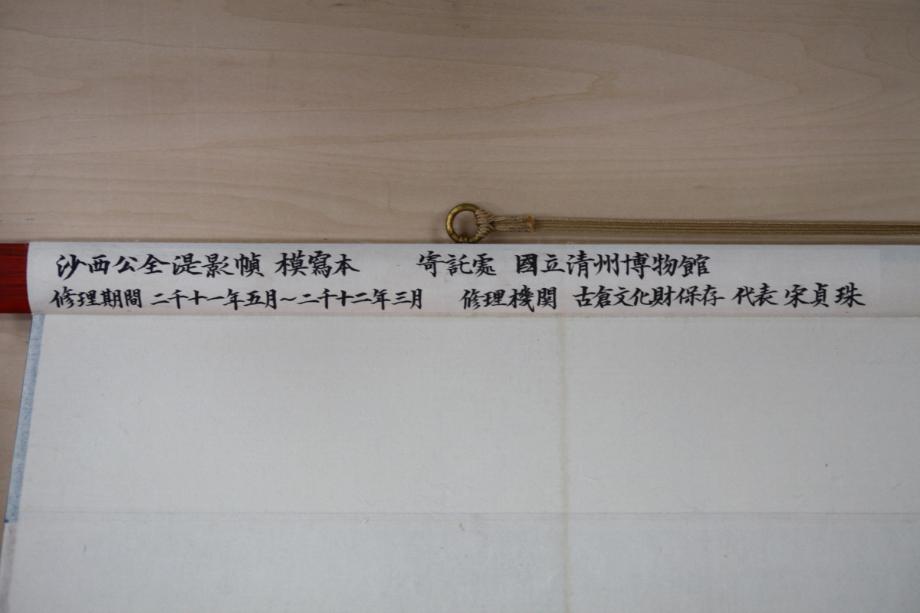 沙西公全湜影幀 模寫本 寄託處 國立清州博物館
修理期間 二千十一年五月~二千十二年三月 修理機関 古倉文化財保存 代表 宋貞珠